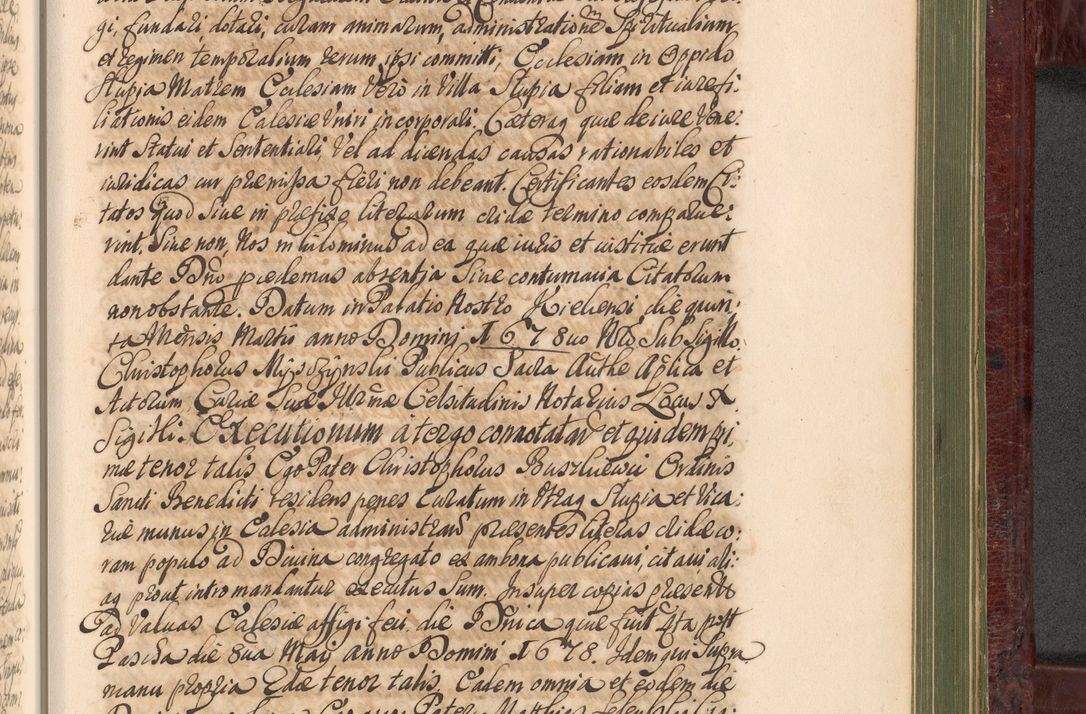 gi, fundari dotari, curam animarum, administrationē Spiritualium
et regimen temporalium rerum ipsi committi, Ecclesiam in Oppido
Stupia Matrem Ecclesiam Vero in Villa Stupia filiam et iurefi:
liationis eidem Ecclesiæ Vniri incorporari. Cæteraq quæ de iure Vene:
rint Statui et Sententiari, Vel ad dicendas causas rationabiles et
iuridicas cur præmissa fieri non debeant. Certificantes eosdem Ci:
tatos Quod Siue in præfixo literarum chdæ termino comparue:
rint, Siue non, Nos nihilominus ad ea quæ iuris et iustitiæ erunt
dante Dño prædemus absentia Siue contumacia Citatorum
non obstante. Datum in Palatio Nostro Kielcensi die quin:
ta Mensis Martii anno Domini 1678uo Nro Sub Sigillo.
Christophorus Publicus Sacra Authe Aplica et
Actorum Curiæ Suæ Illrmæ Celsitudinis Notarius Locus
Sigilli. Executionum a tergo connotatar et quidem pri
mæ tenor talis Ego Pater Christophorus Ordinis
Sancti Benedicti residens penes Curatum in Vtraq Stupia et Vica:
riæ munus in Ecclesia administrans præsentes literas chdæ co:
ram populo ad Diuina congregato ex ambona publicaui, citaui ali:
aq prout intro mandantur executus Sum. Insuper copias præsentes
ad Valuas Ecclesiæ affigi feci. die Dñica quæ fuit 4ta post
Pascha die 8ua Maii anno Domini 1678. Idem qui Supra
manu propria 2dæ tenor talis. Eadem omnia et eodem die